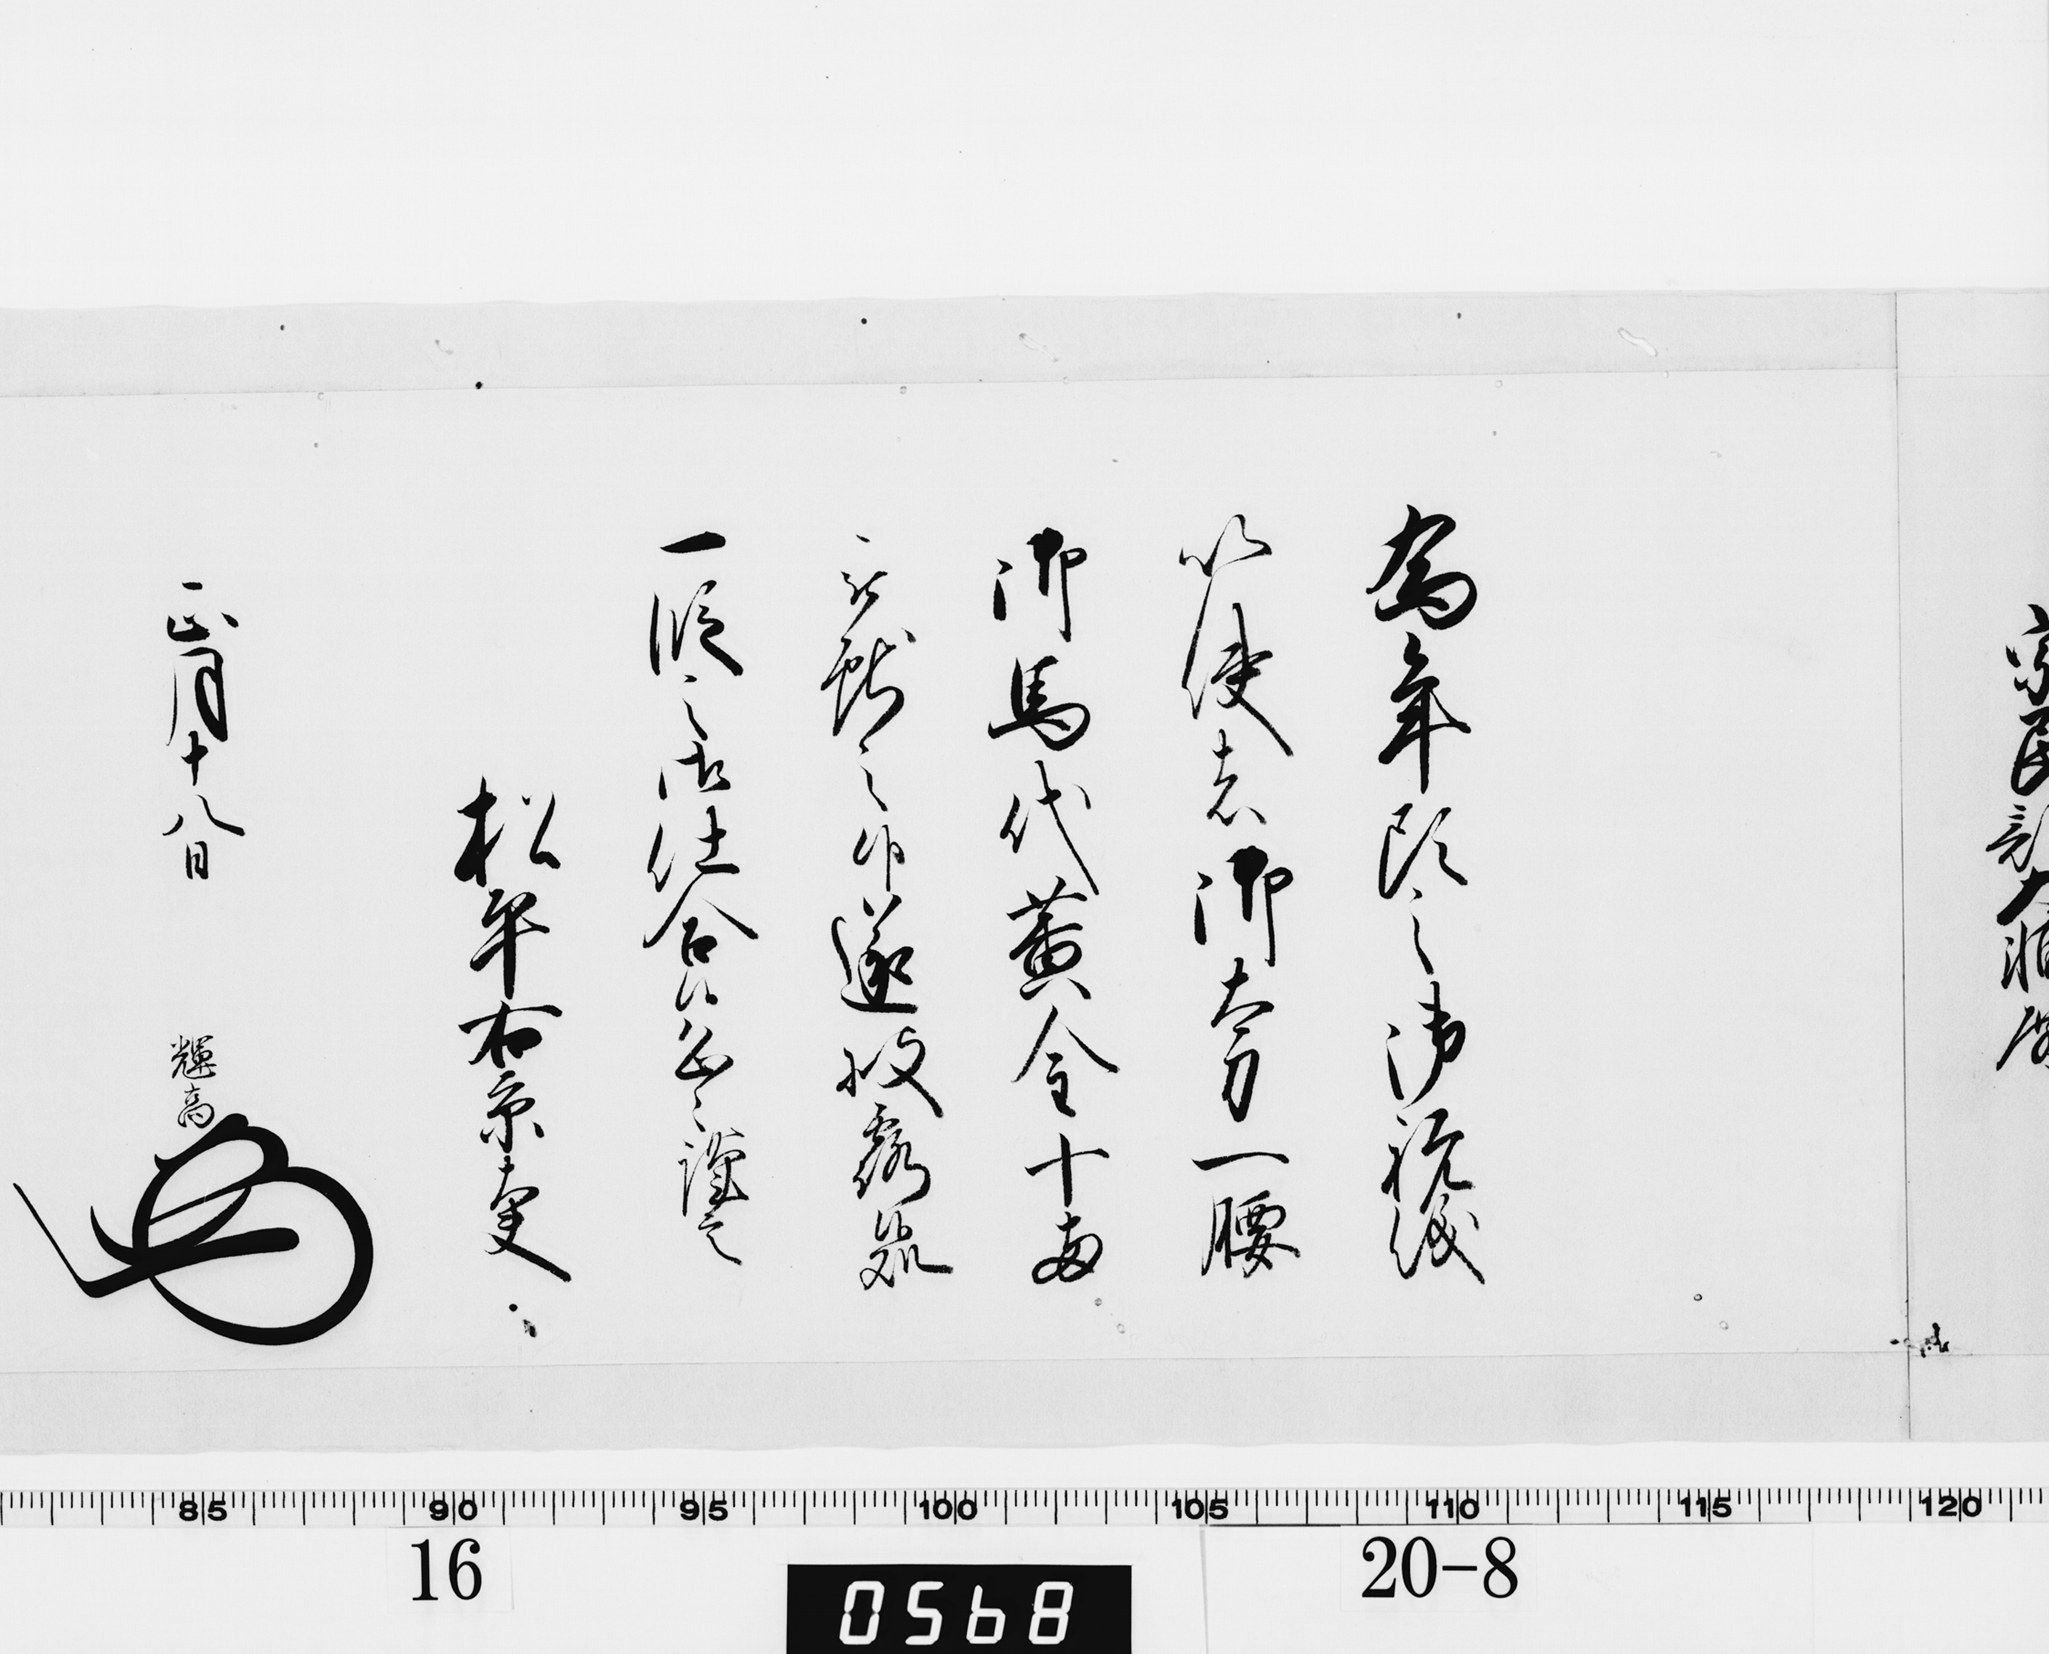 宗民部大輔殿
為年頭之御祝儀
以使者御太刀一腰
御馬代黄金十両
被献之候遂披露候処
一段之御仕合候恐々謹言
松平右京大夫
正月十八日
輝高
85 90 95 100 105 110 115 120
16
0568
20-8